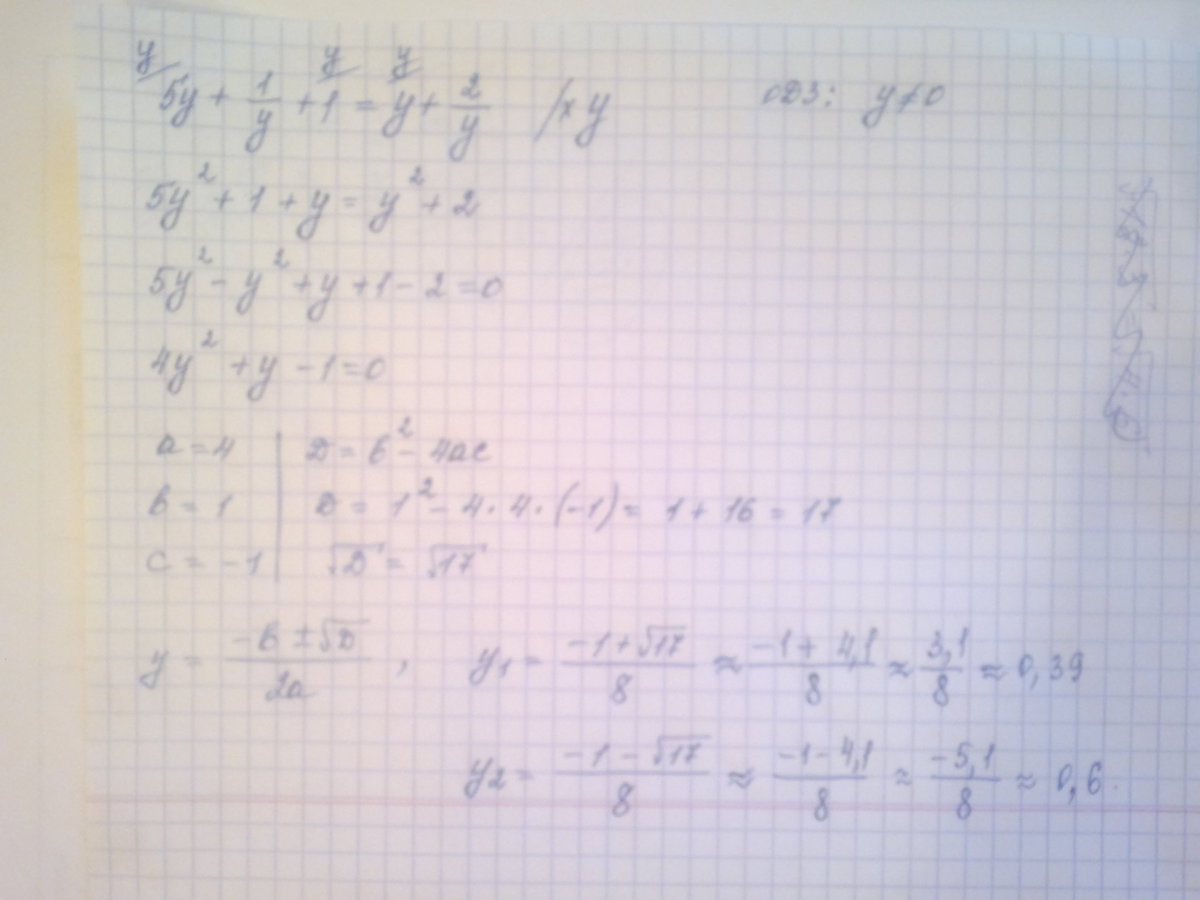 y y y
5y + 1/y + 1 = y + 2/y /× y ОДЗ: y ≠ 0
5y² + 1 + y = y² + 2
5y² - y² + y + 1 - 2 = 0
4y² + y - 1 = 0
a = 4 | D = b² - 4ac
b = 1 | D = 1² - 4 · 4 · (-1) = 1 + 16 = 17
c = -1 | √D = √17
y = (-b ± √D)/2a , y₁ = (-1 + √17)/8 ≈ (-1 + 4,1)/8 ≈ 3,1/8 ≈ 0,39
y₂ = (-1 - √17)/8 ≈ (-1 - 4,1)/8 ≈ (-5,1)/8 ≈ 0,6.